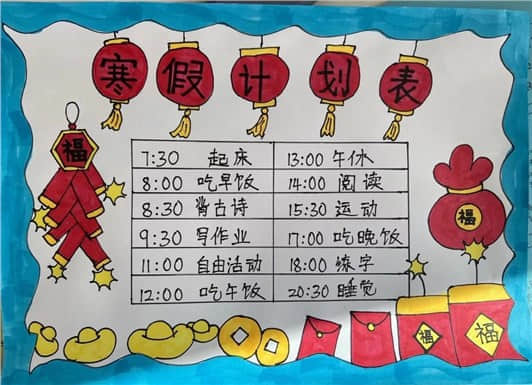 寒假计划表
福
7:30 起床 13:00 午休
8:00 吃早饭 14:00 阅读
8:30 背古诗 15:30 运动
福
9:30 写作业 17:00 吃晚饭
11:00 自由活动 18:00 练字
12:00 吃午饭 20:30 睡觉
福
福